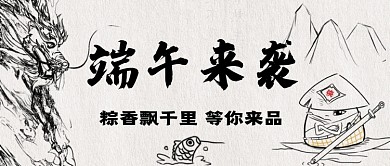 端午来袭
粽香飘千里 等你来品